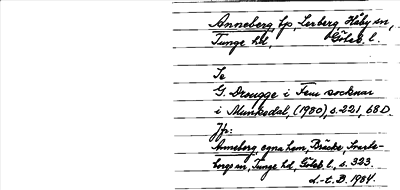 Anneberg, fp, Lerberg, Håby sn,
Tunge hd, Göteb. l.
Se
G. Drougge i Fem socknar
i Munkedal, (1980), s. 221, 68D.
Jfr:
Anneberg, egna hem, Bräcke, Svarte-
borgs sn, Tunge hd, Göteb. l., s. 323.
d.-t. B. 1984.